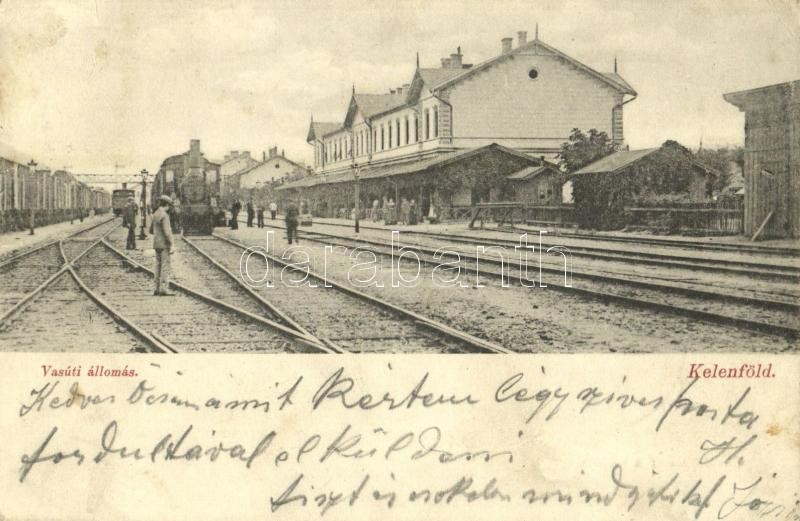 darabanth
Vasúti állomás.
Kelenföld.
Kedves Öcsém amit Kértem légy szives posta
fordultával elküldeni
H.
tiszt és csokolom mindgetikt Józsi